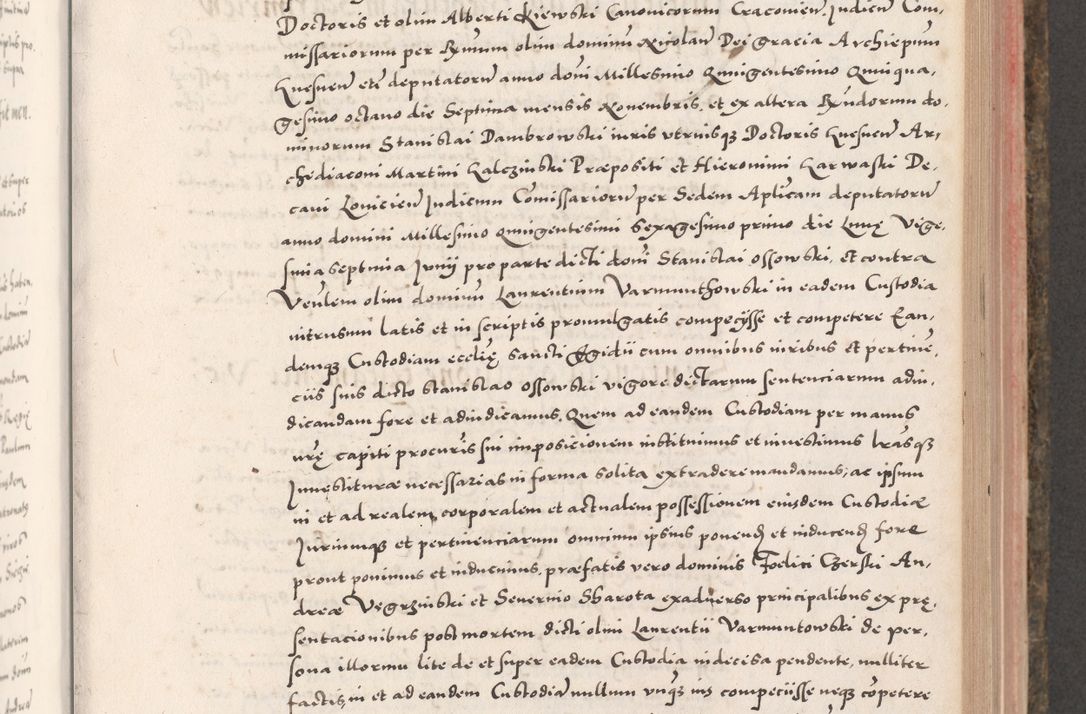 Doctoris et olim Alberti Kiewski Canonicorum Cracovien̄ Judicū Com,
missariorum per R̄mum olim dominū Nicolaū Dei gracia Archiepūm
Gnesnen̄ etc̄ deputatorū anno doīni Millesimo Quingentesimo Quinqua,
gesimo octavo die Septima mensis Novembris, et ex altera R̄ndorum do,
minorum Stanislai Dambrowski iuris utriusq̨ Doctoris Gnesnen̄ Ar,
chidiaconi Martini Galczinski Præpositi et Hieronimi Karwaski De,
cani Lovicien̄ Judicum Com̄issariorū per Sedem Ap̄licam deputatorū
anno domini Millesimo Quingentesimi Sexagesimo primo die Lunę Vige,
sima septima Junij pro parte dicti doīni Stanislai Ossowski, et contra
Ven̄lem olim dominū Laurentium Varmunthowski in eadem Custodia
intrusum latis et in scriptis promulgatis competijsse et competere Ean,
demq̨ Custodiam ecc̄lię Sancti Egidii cum omnibus iuribus et pertinē,
ciis suis dicto Stanislao Ossowski vigore dictarum sentenciarum adiu,
dicandam fore et adiudicamus, Quem ad eandem Custodiam per manus
nr̄ę capiti procur̄is sui imposicionem instituimus et investimus l̄rasq̨
Investituræ necessarias in forma solita extradere mandamus, ac ipsum
in et ad realem, corporalem et actualem possessionem eiusdem Custodiæ
Juriumq̨ et pertinenciarum omnium ipsius ponend̄ et inducend̄ fore
prout ponimus et inducimus, præfatis vero dominis Foelici Czerski An,
dreæ Vegrzinski et Severino Sbarota ex adverso principalibus ex prę,
sentacionibus post mortem dicti olim Laurentii Varmuntowski de per,
sona illorum lite de et super eadem Custodia indecisa pendente, nulliter
factis, in et ad eandem Custodiā nullum unq̨ ius competiisse neq̨ cōpetere